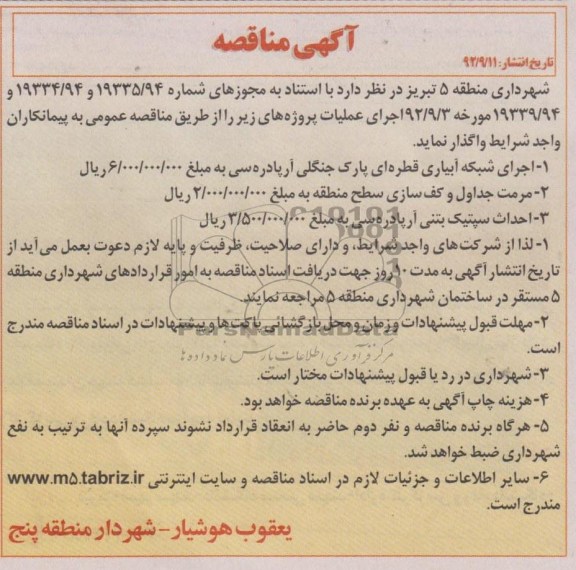 آگهی مناقصه
تاریخ انتشار: ۹۲/۹/۱۱
شهرداری منطقه ۵ تبریز در نظر دارد با استناد به مجوزهای شماره ۱۹۳۳۵/۹۴ و ۱۹۳۳۴/۹۴ و
۱۹۳۳۹/۹۴ مورخه ۹۲/۹/۳ اجرای عملیات پروژه‌های زیر را از طریق مناقصه عمومی به پیمانکاران
واجد شرایط واگذار نماید.
۱- اجرای شبکه آبیاری قطره‌ای پارک جنگلی آرپادره‌سی به مبلغ ۶/۰۰۰/۰۰۰/۰۰۰ ریال
۲- مرمت جداول و کف سازی سطح منطقه به مبلغ ۲/۰۰۰/۰۰۰/۰۰۰ ریال
۳- احداث سپتیک بتنی آرپادره‌سی به مبلغ ۳/۵۰۰/۰۰۰/۰۰۰ ریال
۱- لذا از شرکت‌های واجد شرایط، و دارای صلاحیت، ظرفیت و پایه لازم دعوت بعمل می‌آید از
تاریخ انتشار آگهی به مدت ۱۰ روز جهت دریافت اسناد مناقصه به امور قراردادهای شهرداری منطقه
۵ مستقر در ساختمان شهرداری منطقه ۵ مراجعه نمایند.
۲- مهلت قبول پیشنهادات و زمان و محل بازگشائی پاکت‌ها و پیشنهادات در اسناد مناقصه مندرج
است.
ParsNamadData
مرکز فرآوری اطلاعات پارس نماد داده ها
۳- شهرداری در رد یا قبول پیشنهادات مختار است.
۴- هزینه چاپ آگهی به عهده برنده مناقصه خواهد بود.
۵- هرگاه برنده مناقصه و نفر دوم حاضر به انعقاد قرارداد نشوند سپرده آنها به ترتیب به نفع
شهرداری ضبط خواهد شد.
۶- سایر اطلاعات و جزئیات لازم در اسناد مناقصه و سایت اینترنتی www.m۵.tabriz.ir
مندرج است.
یعقوب هوشیار - شهردار منطقه پنج